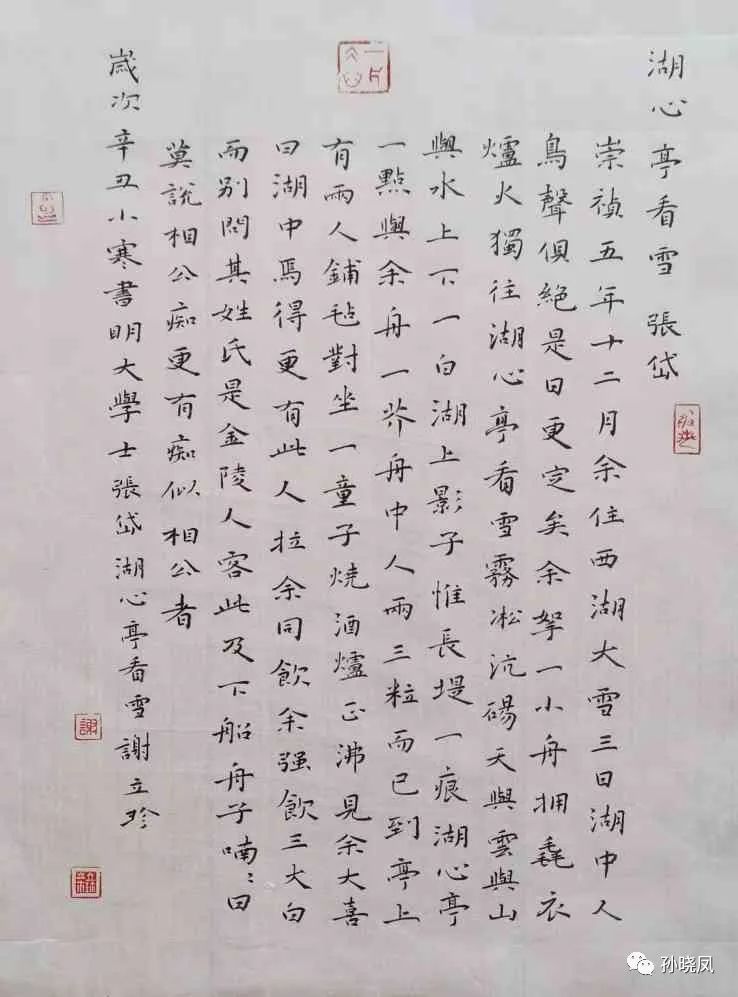 湖心亭看雪 張岱
崇禎五年十二月余住西湖大雪三日湖中人
鳥聲俱絕是日更定矣余拏一小舟擁毳衣
爐火獨往湖心亭看雪霧凇沆碭天與雲與山
與水上下一白湖上影子惟長堤一痕湖心亭
一點與余舟一芥舟中人兩三粒而已到亭上
有兩人鋪毡對坐一童子燒酒爐正沸見余大喜
曰湖中焉得更有此人拉余同飲余强飲三大白
而別問其姓氏是金陵人客此及下船舟子喃〻曰
莫說相公痴更有痴似相公者
歲次辛丑小寒書明大學士張岱湖心亭看雪謝立珍
孙晓凤